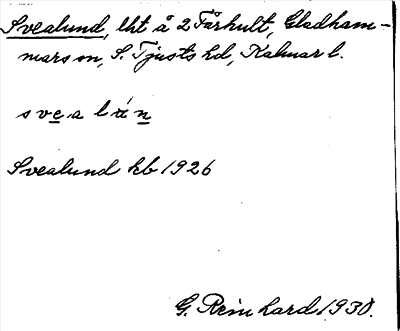 Svealund, lht å 2 Fårhult, Gladham-
mars sn, S. Tjusts hd, Kalmar l.
Svealund kb 1926
G. Reinhard 1930.